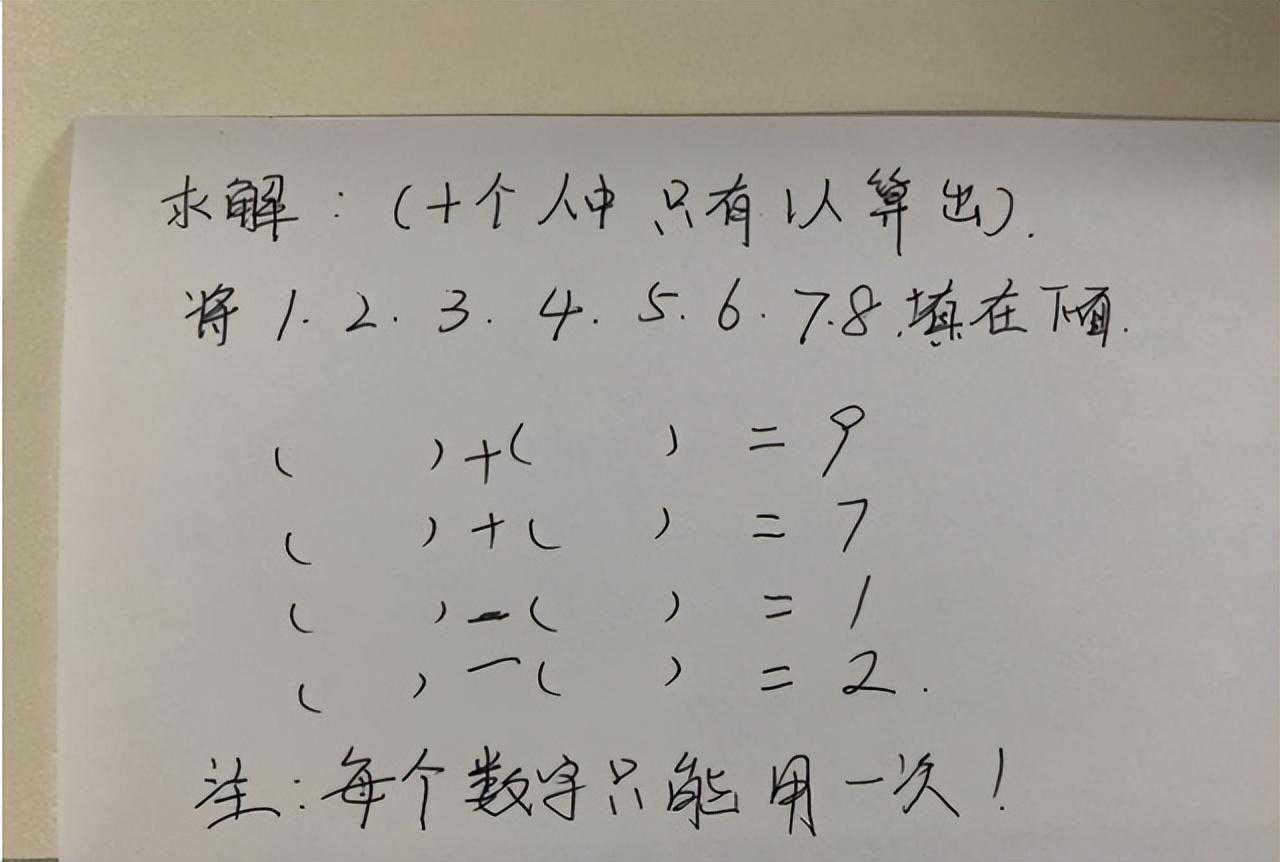 求解:(十个人中只有1人算出).
将1.2.3.4.5.6.7.8.填在下面.
( )+( )=9
( )+( )=7
( )-( )=1
( )-( )=2.
注:每个数字只能用一次!